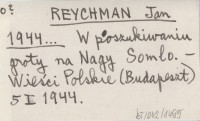 o?
REYCHMAN Jan
1944... W poszukiwaniu
groty na Nagy Somlo. –
Wieści Polskie (Budapeszt)
5 I 1944.